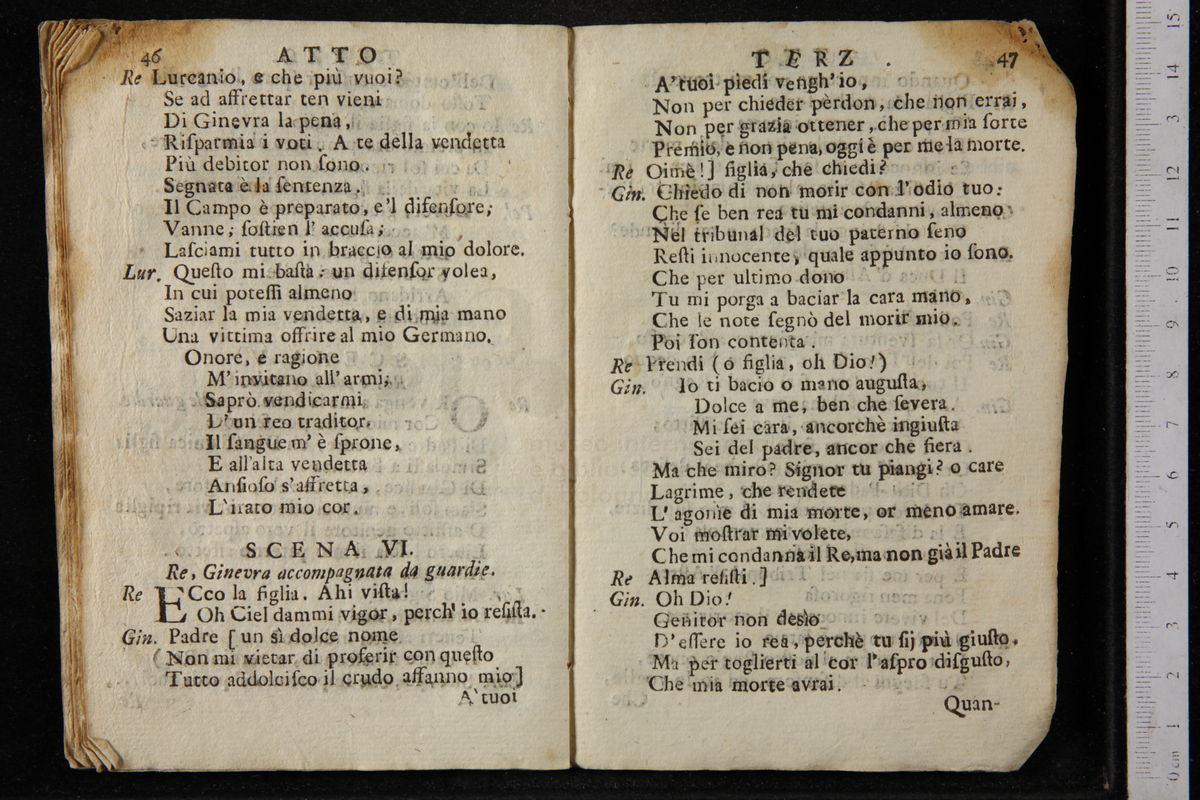 46 ATTO
Re Lurcanio, e che più vuoi?
Se ad affrettar ten vieni
Di Ginevra la pena,
Riſparmia i voti. A te della vendetta
Più debitor non ſono.
Segnata è la ſentenza.
Il Campo è preparato, e'l difenſore;
Vanne; ſoſtien l' accuſa;
Laſciami tutto in braccio al mio dolore.
Lur. Queſto mi baſta: un difenſor volea,
In cui poteſſi almeno
Saziar la mia vendetta, e di mia mano
Una vittima offrire al mio Germano.
Onore, e ragione
M'invitano all'armi;
Saprò vendicarmi
D'un reo traditor.
Il ſangue m' è ſprone,
E all'alta vendetta
Anſioſo s'affretta,
L'irato mio cor.
SCENA VI.
Re, Ginevra accompagnata da guardie.
Re ECco la figlia. Ahi viſta!
Oh Ciel dammi vigor, perch' io reſiſta.
Gin. Padre [un sì dolce nome
(Non mi vietar di proferir con queſto
Tutto addolciſco il crudo affanno mio]
A'tuoi
TERZ . 47
A'tuoi piedi vengh'io,
Non per chieder pèrdon, che non errai,
Non per grazia ottener, che per mia ſorte
Premio, e non pena, oggi è per me la morte.
Re Oimè!] figlia, che chiedi?
Gin. Chiedo di non morir con l'odio tuo:
Che ſe ben rea tu mi condanni, almeno
Nel tribunal del tuo paterno ſeno
Reſti innocente, quale appunto io ſono.
Che per ultimo dono
Tu mi porga a baciar la cara mano,
Che le note ſegnò del morir mio.
Poi ſon contenta.
Re Prendi (o figlia, oh Dio!)
Gin. Io ti bacio o mano auguſta,
Dolce a me, ben che ſevera.
Mi ſei cara, ancorchè ingiuſta
Sei del padre, ancor che fiera.
Ma che miro? Signor tu piangi? o care
Lagrime, che rendete
L' agonìe di mia morte, or meno amare.
Voi moſtrar mi volete,
Che mi condanna il Re, ma non già il Padre
Re Alma reſiſti.]
Gin. Oh Dio!
Genitor non deſìo
D'eſſere io rea, perchè tu ſij più giuſto.
Ma per toglierti al cor l'aſpro diſguſto,
Che mia morte avrai.
Quan-